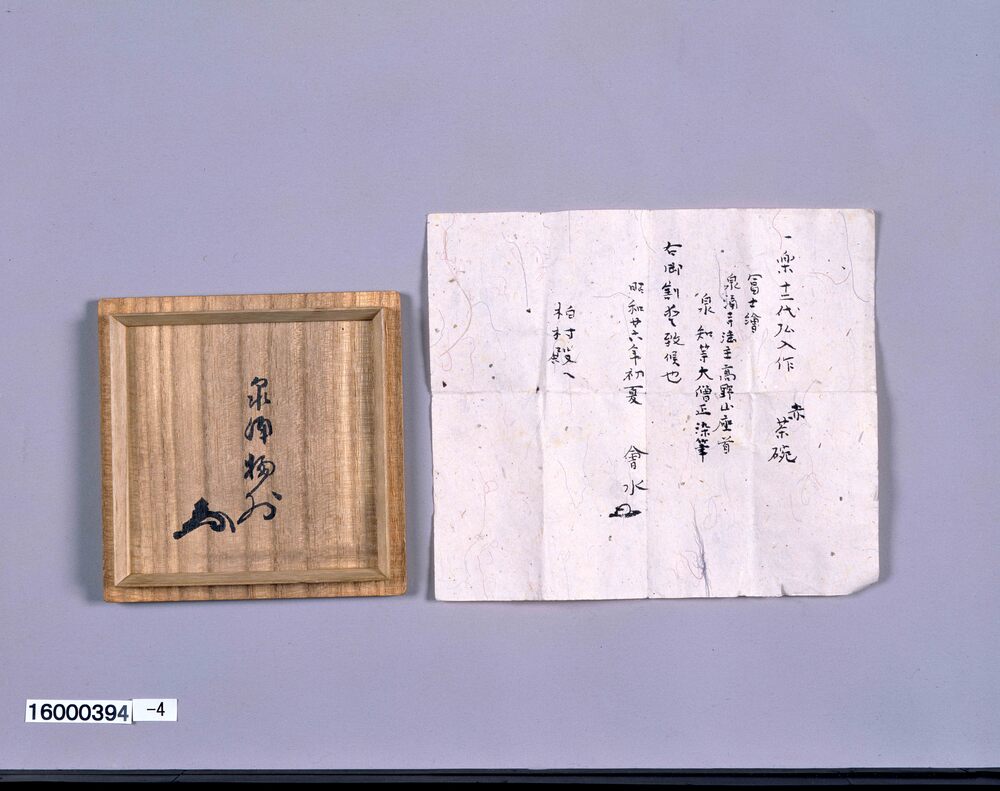 一 楽 十二代弘入作 赤 茶碗
冨士繪
泉涌寺法主高野山座首
泉 知等大僧正染筆
右 致候也
昭和廿六年初夏 會水
柏村殿へ
泉
16000394 -4